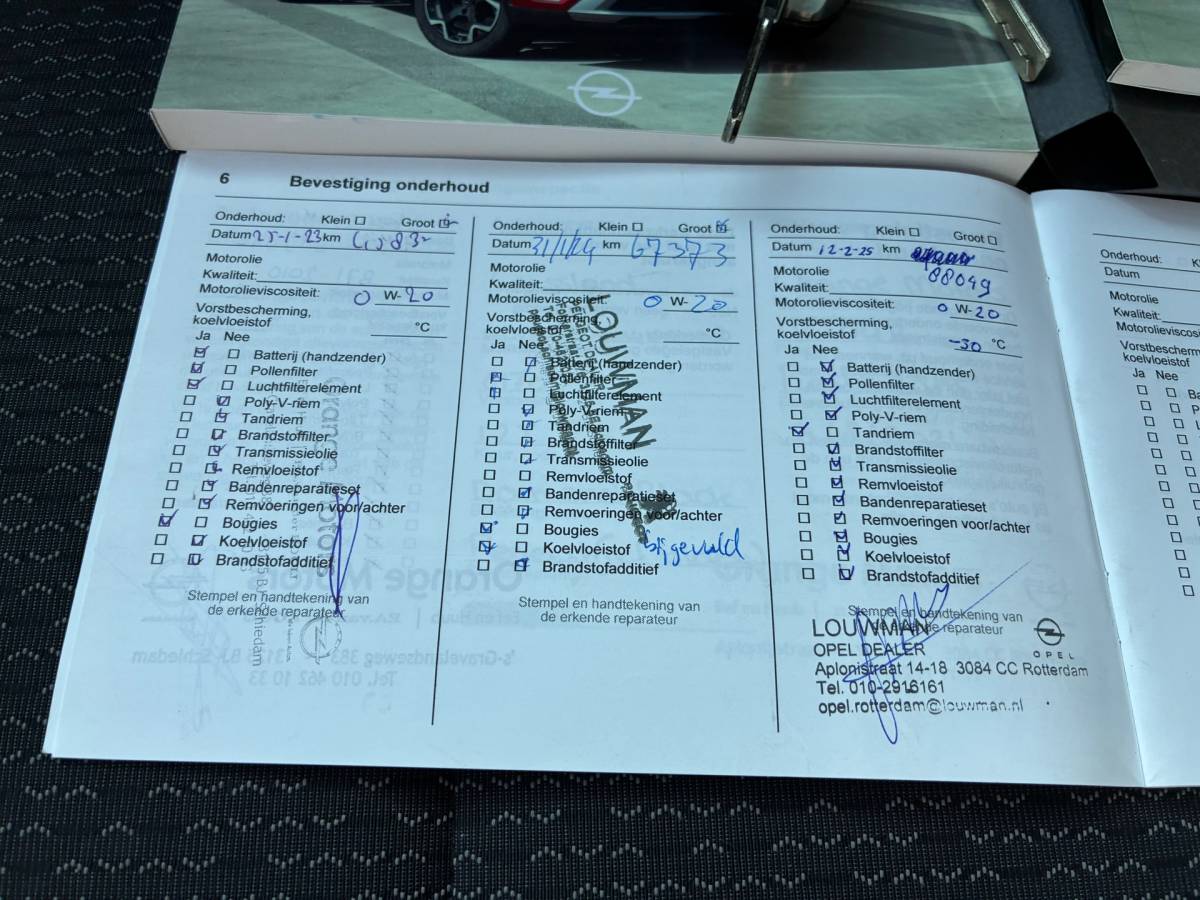 6 Bevestiging onderhoud
Onderhoud: Klein ☐ Groot ☑
Datum 25-1-23 km
Motorolie
Kwaliteit:
Motorolieviscositeit: 0 W-20
Vorstbescherming,
koelvloeistof °C
Ja Nee
☑ ☐ Batterij (handzender)
☑ ☐ Pollenfilter
☑ ☐ Luchtfilterelement
☐ ☑ Poly-V-riem
☐ ☑ Tandriem
☐ ☑ Brandstoffilter
☐ ☑ Transmissieolie
☐ ☑ Remvloeistof
☐ ☑ Bandenreparatieset
☐ ☑ Remvoeringen voor/achter
☑ ☐ Bougies
☐ ☑ Koelvloeistof
☐ ☑ Brandstofadditief
Stempel en handtekening van
de erkende reparateur
Orange Motors
Schiedam
Onderhoud: Klein ☐ Groot ☑
Datum 31/1/24 km 67373
Motorolie
Kwaliteit:
Motorolieviscositeit: 0 W-20
Vorstbescherming,
koelvloeistof °C
Ja Nee
☐ ☑ Batterij (handzender)
☑ ☐ Pollenfilter
☑ ☐ Luchtfilterelement
☐ ☑ Poly-V-riem
☐ ☑ Tandriem
☐ ☑ Brandstoffilter
☐ ☑ Transmissieolie
☐ ☐ Remvloeistof
☐ ☑ Bandenreparatieset
☐ ☑ Remvoeringen voor/achter
☑ ☐ Bougies
☑ ☐ Koelvloeistof bijgevuld
☐ ☑ Brandstofadditief
Stempel en handtekening van
de erkende reparateur
LOUWMAN
Onderhoud: Klein ☐ Groot ☐
Datum 12-2-25 km
88049
Motorolie
Kwaliteit:
Motorolieviscositeit: 0 W-20
Vorstbescherming,
koelvloeistof -30 °C
Ja Nee
☐ ☑ Batterij (handzender)
☐ ☑ Pollenfilter
☐ ☑ Luchtfilterelement
☐ ☑ Poly-V-riem
☑ ☐ Tandriem
☐ ☑ Brandstoffilter
☐ ☑ Transmissieolie
☐ ☑ Remvloeistof
☐ ☑ Bandenreparatieset
☐ ☑ Remvoeringen voor/achter
☐ ☑ Bougies
☐ ☑ Koelvloeistof
☐ ☑ Brandstofadditief
Stempel en handtekening van
de erkende reparateur
LOUWMAN
OPEL DEALER
OPEL
Aplonistraat 14-18 3084 CC Rotterdam
Tel. 010-2916161
opel.rotterdam@louwman.nl
Onderhoud:
Datum
Motorolie
Kwaliteit:
Motorolieviscositeit:
Vorstbescherming,
koelvloeistof
Ja Nee